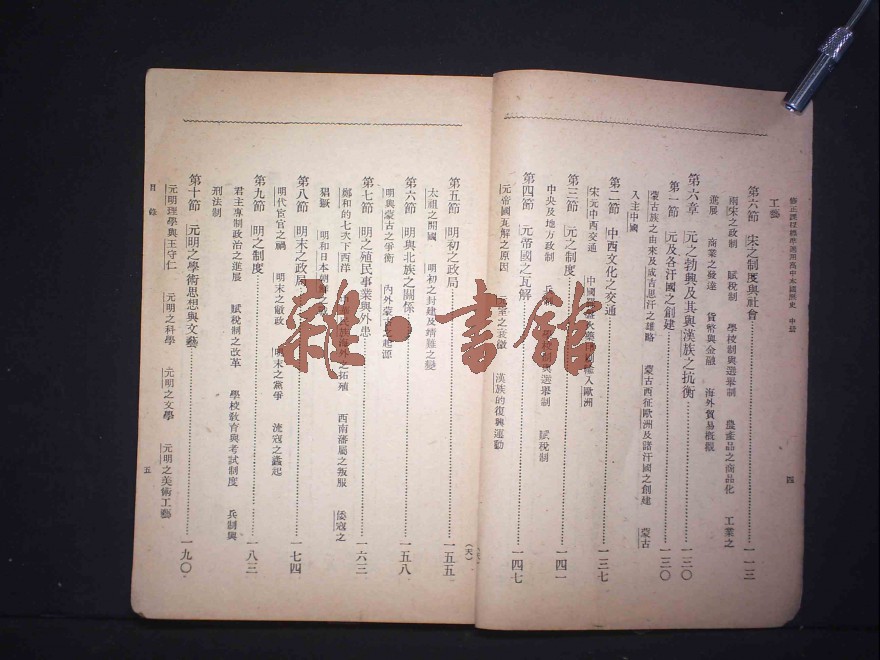 修正課程標準適用高中本國歷史 中册
四
工藝
第六節 宋之制度與社會 一一三
兩宋之政制 賦稅制 學校制與選舉制 農產品之商品化 工業之
進展 商業之發達 貨幣與金融 海外貿易概觀
第六章 元之勃興及其與漢族之抗衡 一三〇
第一節 元及各汗國之創建 一三〇
蒙古族之由來及成吉思汗之雄略 蒙古西征歐洲及諸汗國之創建 蒙古
入主中國
第二節 中西文化之交通 一三七
宋元中西交通 中國 入歐洲
第三節 元之制度 一四一
中央及地方政制 兵 制與選舉制 賦稅制
第四節 元帝國之瓦解 一四七
元帝國瓦解之原因 室之衰微 漢族的復興運動
(天)
第五節 明初之政局 一五五
太祖之開國 明初之封建及靖難之變
第六節 明與北族之關係 一五八
明與蒙古之爭衡 內外蒙古之起源
第七節 明之殖民事業與外患 一六三
鄭和的七次下西洋 海外之拓殖 西南藩屬之叛服 倭寇之
猖獗 明和日本朝鮮之
第八節 明末之政局 一七四
明代宦官之禍 明末之敝政 明末之黨爭 流寇之蠭起
第九節 明之制度 一八三
君主專制政治之進展 賦稅制之改革 學校教育與考試制度 兵制與
刑法制
第十節 元明之學術思想與文藝 一九〇
元明理學與王守仁 元明之科學 元明之文學 元明之美術工藝
目錄
五
雜·書館